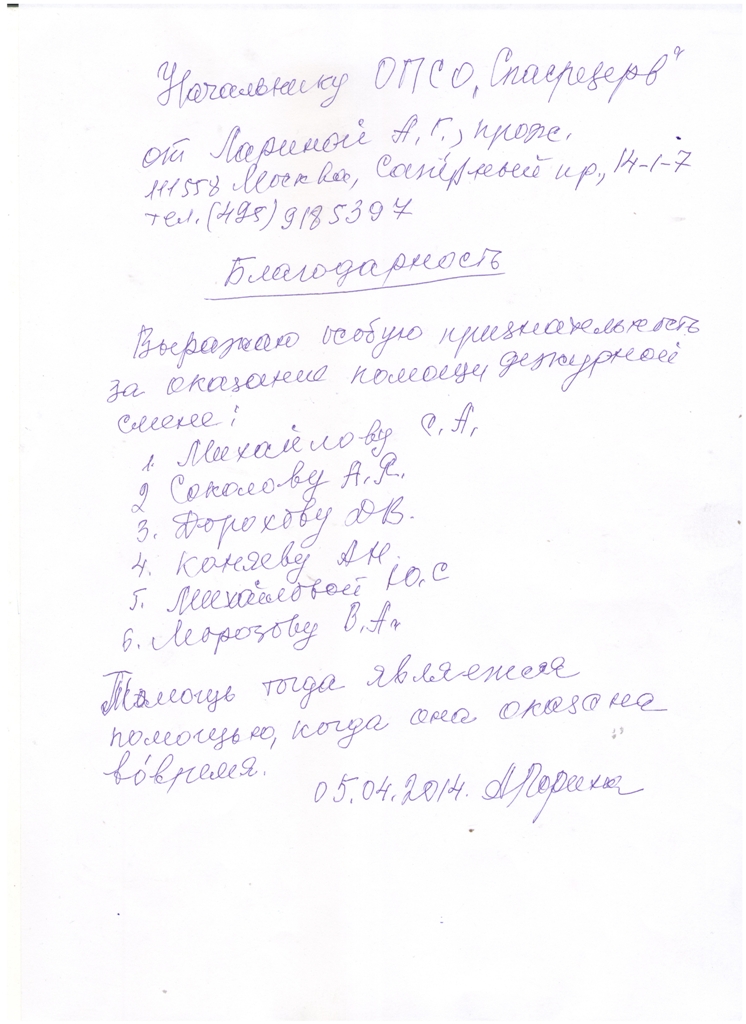 Начальнику ОПСО „Спасрезерв"
от Лариной А.Г., прож.
111558 Москва, Сапёрный пр., 14-1-7
тел. (495) 9185397
Благодарность
Выражаю особую признательность
за оказание помощи дежурной
смене:
1. Михайлову С.А.
2 Соколову А.Я.
3. Дорохову Д.В.
4. Коняеву А.Н.
5. Михайловой Ю.С
6. Морозову В.А.
Помощь тогда является
помощью, когда она оказана
во́время.
05.04.2014. АЛарина